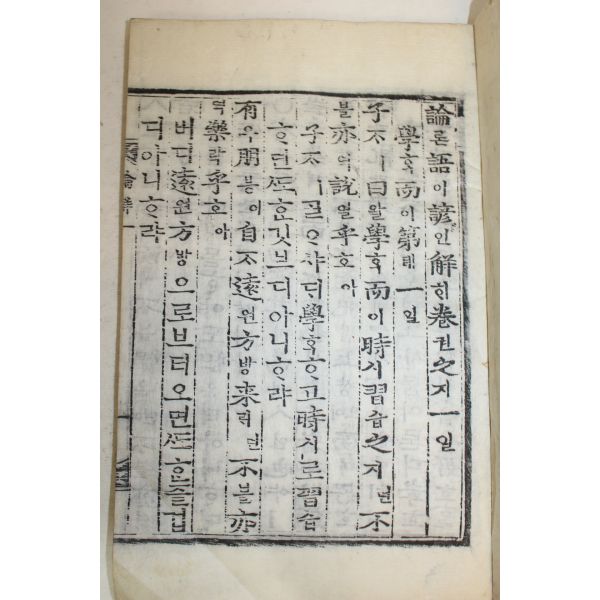 論론語어諺언解ᄒᆡ卷권之지一일
學ᄒᆞᆨ而이第뎨一일
子ᄌᆞㅣ曰왈學ᄒᆞᆨ而이時시習습之지면不
블亦역說열乎호아
子ᄌᆞㅣᄀᆞᆯᄋᆞ샤ᄃᆡ學ᄒᆞᆨᄒᆞ고時시로習습
ᄒᆞ면ᄯᅩᄒᆞᆫ깃브디아니ᄒᆞ랴
有우朋븡이自ᄌᆞ遠원方방來ᄅᆡ면不블亦
역樂락乎호아
버디遠원方방으로브터오면ᄯᅩᄒᆞᆫ즐겁
디아니ᄒᆞ랴